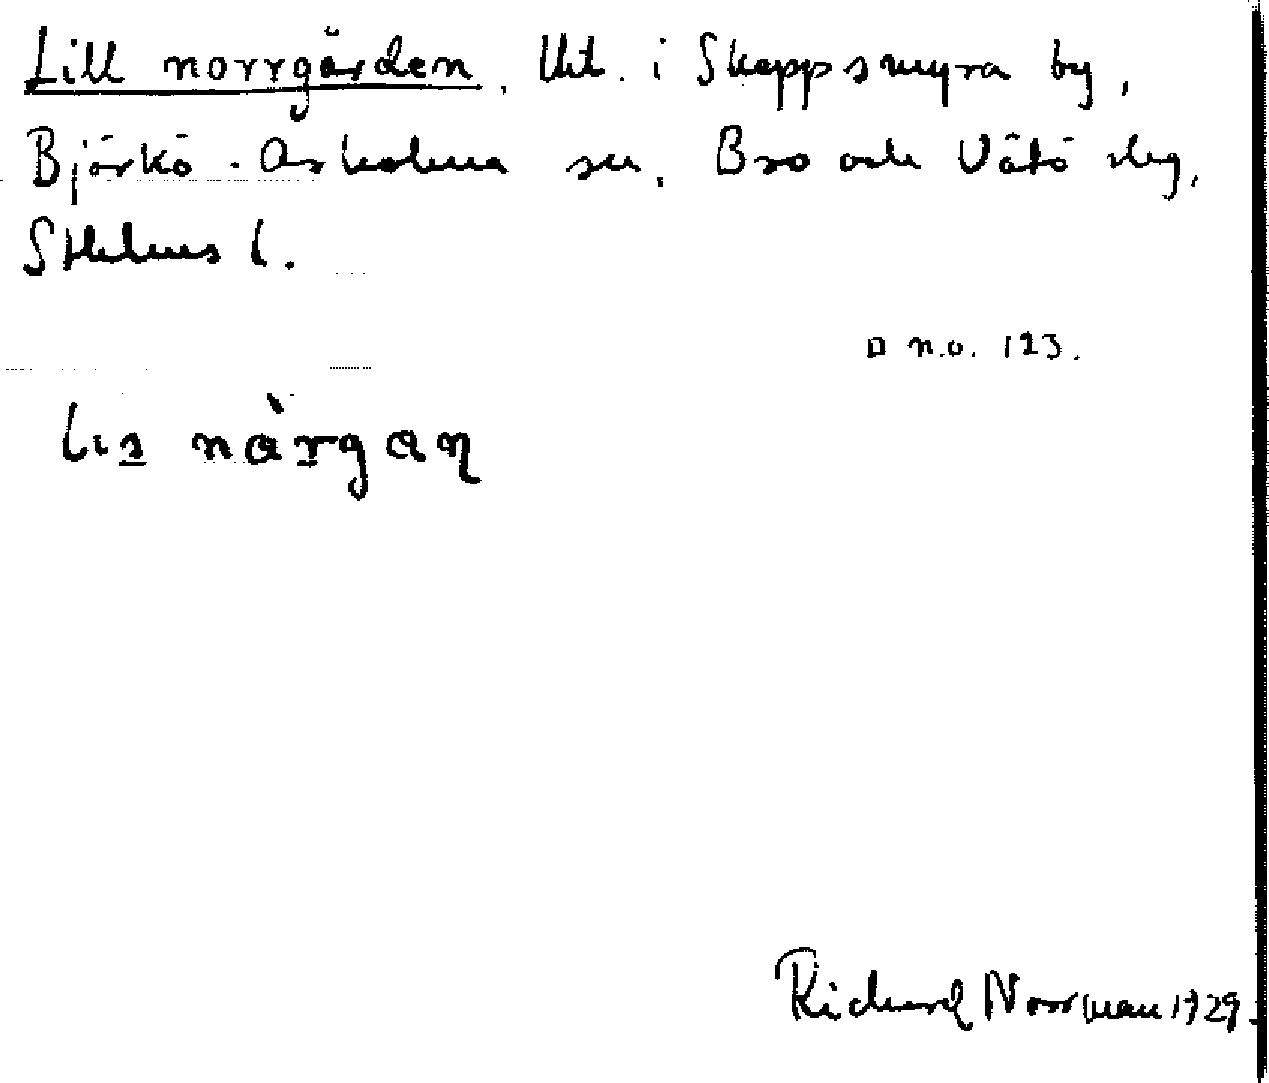 Lill norrgården. Utt. i Skeppsmyra by,
Björkö-Arholma sn. Bro och Vätö slg,
Sthlms l.
D n.o. 123.
närgan
Richard Norrman 1929.